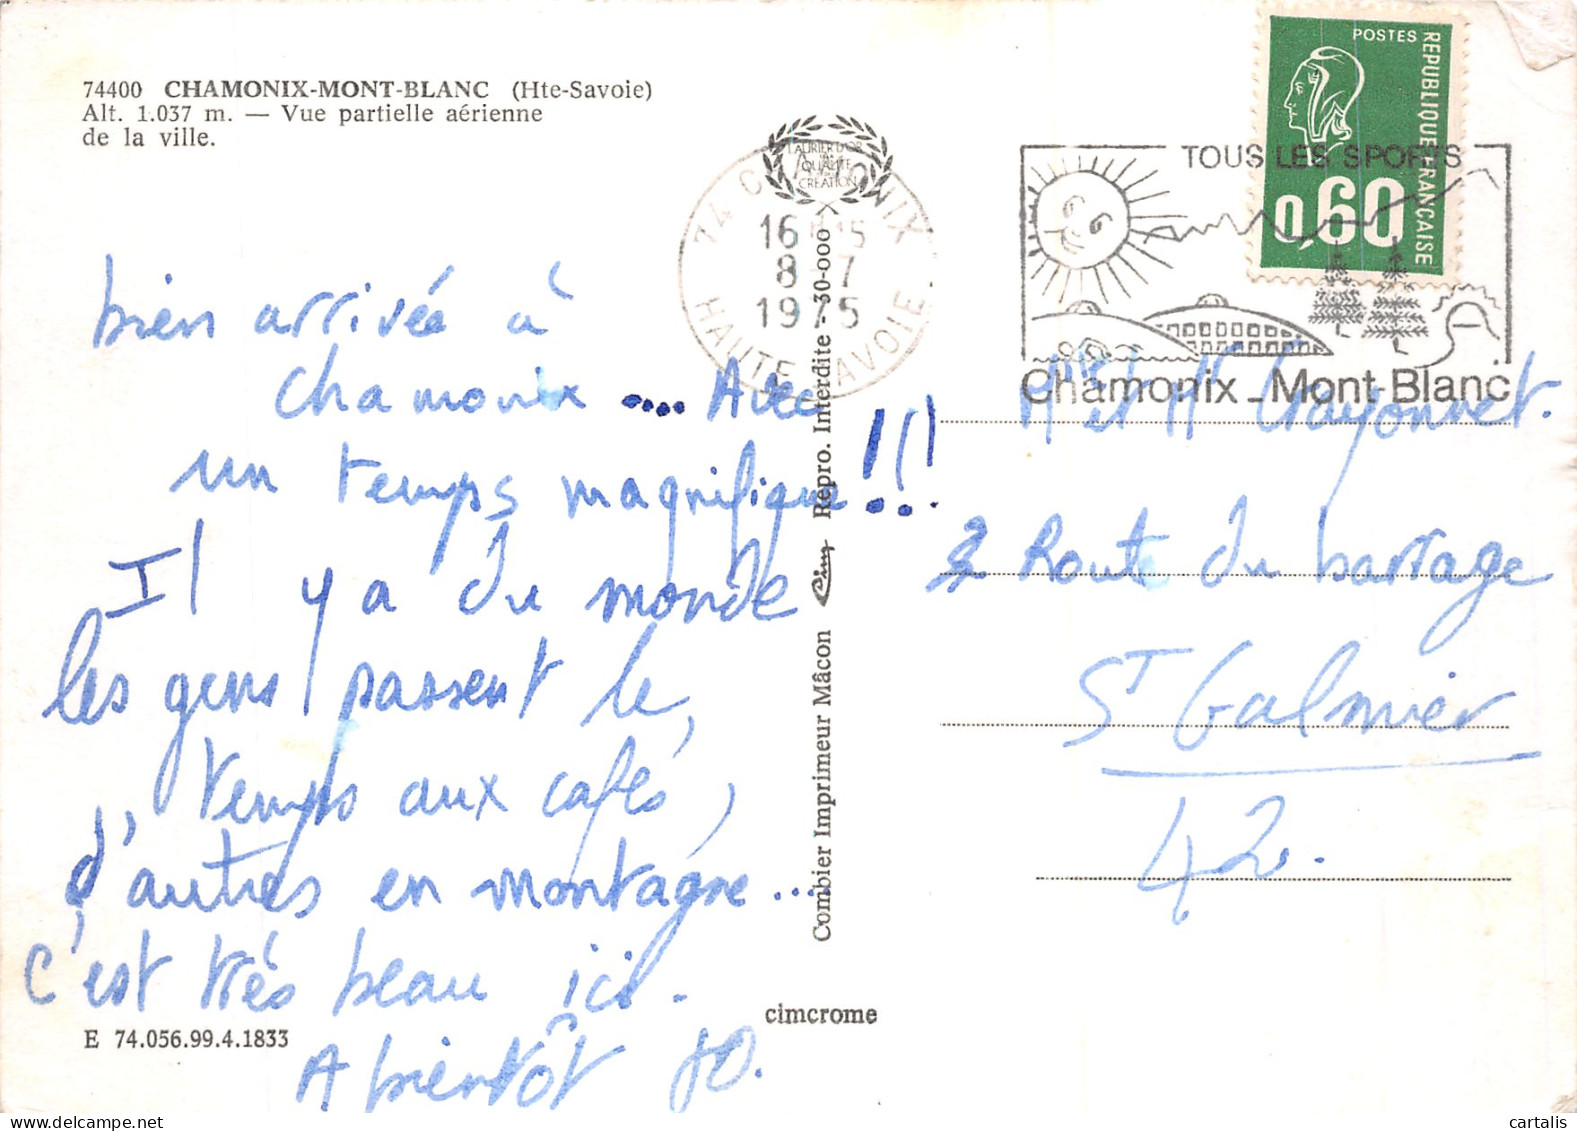 74400 CHAMONIX-MONT-BLANC (Hte-Savoie)
Alt. 1.037 m. — Vue partielle aérienne
de la ville.
bien arrivée à
Chamonix .... Avec
un temps magnifique !!!
Il y a du monde
les gens passent le,
temps aux cafés,
d'autres en montagne ...
c'est très beau ici.
A bientôt JO.
E 74.056.99.4.1833
cimcrome
Combier Imprimeur Mâcon Cim Repro. Interdite . 30-000
LAURIER D'OR
QUALITÉ
CRÉATION
74 CHAMONIX
16 15
8-7
1975
HAUTE SAVOIE
TOUS LES SPORTS
Chamonix_Mont-Blanc
POSTES
REPUBLIQUE FRANÇAISE
0,60
Mr et Me Crayonnet.
2 Route du barrage
ST Galmier
42.
cartalis